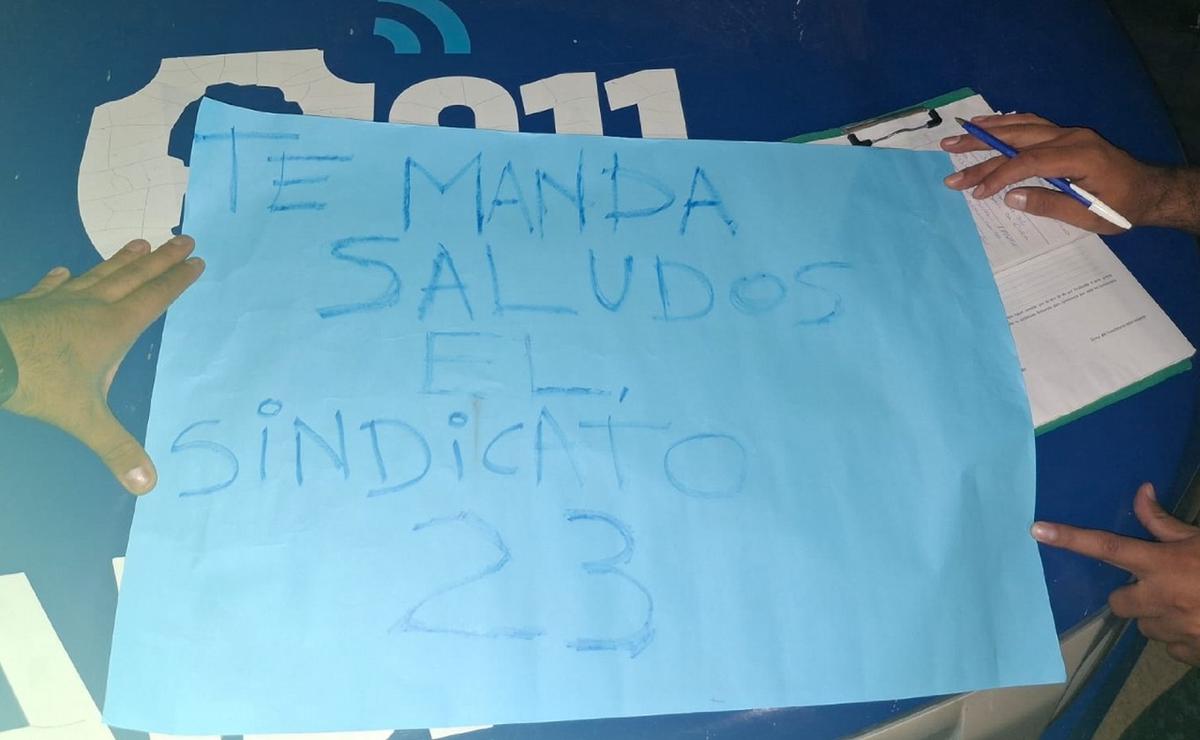 911
TE MANDA
SALUDOS
EL,
SiNDiCATO
23